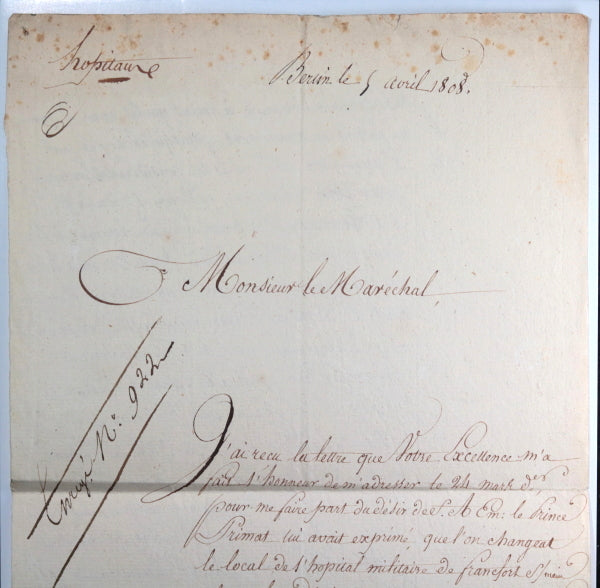 hopitaux
Berlin le 5 avril 1808.
Monsieur le Maréchal,
Envoyé N.° 922
J'ai recu la lettre que Votre Excellence m'a
fait l'honneur de m'adresser le 24 mars d.er
pour me faire part du désir de S. A Em: le Prince
Primat lui avait exprimé, que l'on changeat
le local de l'hopital militaire de francfort s/mein